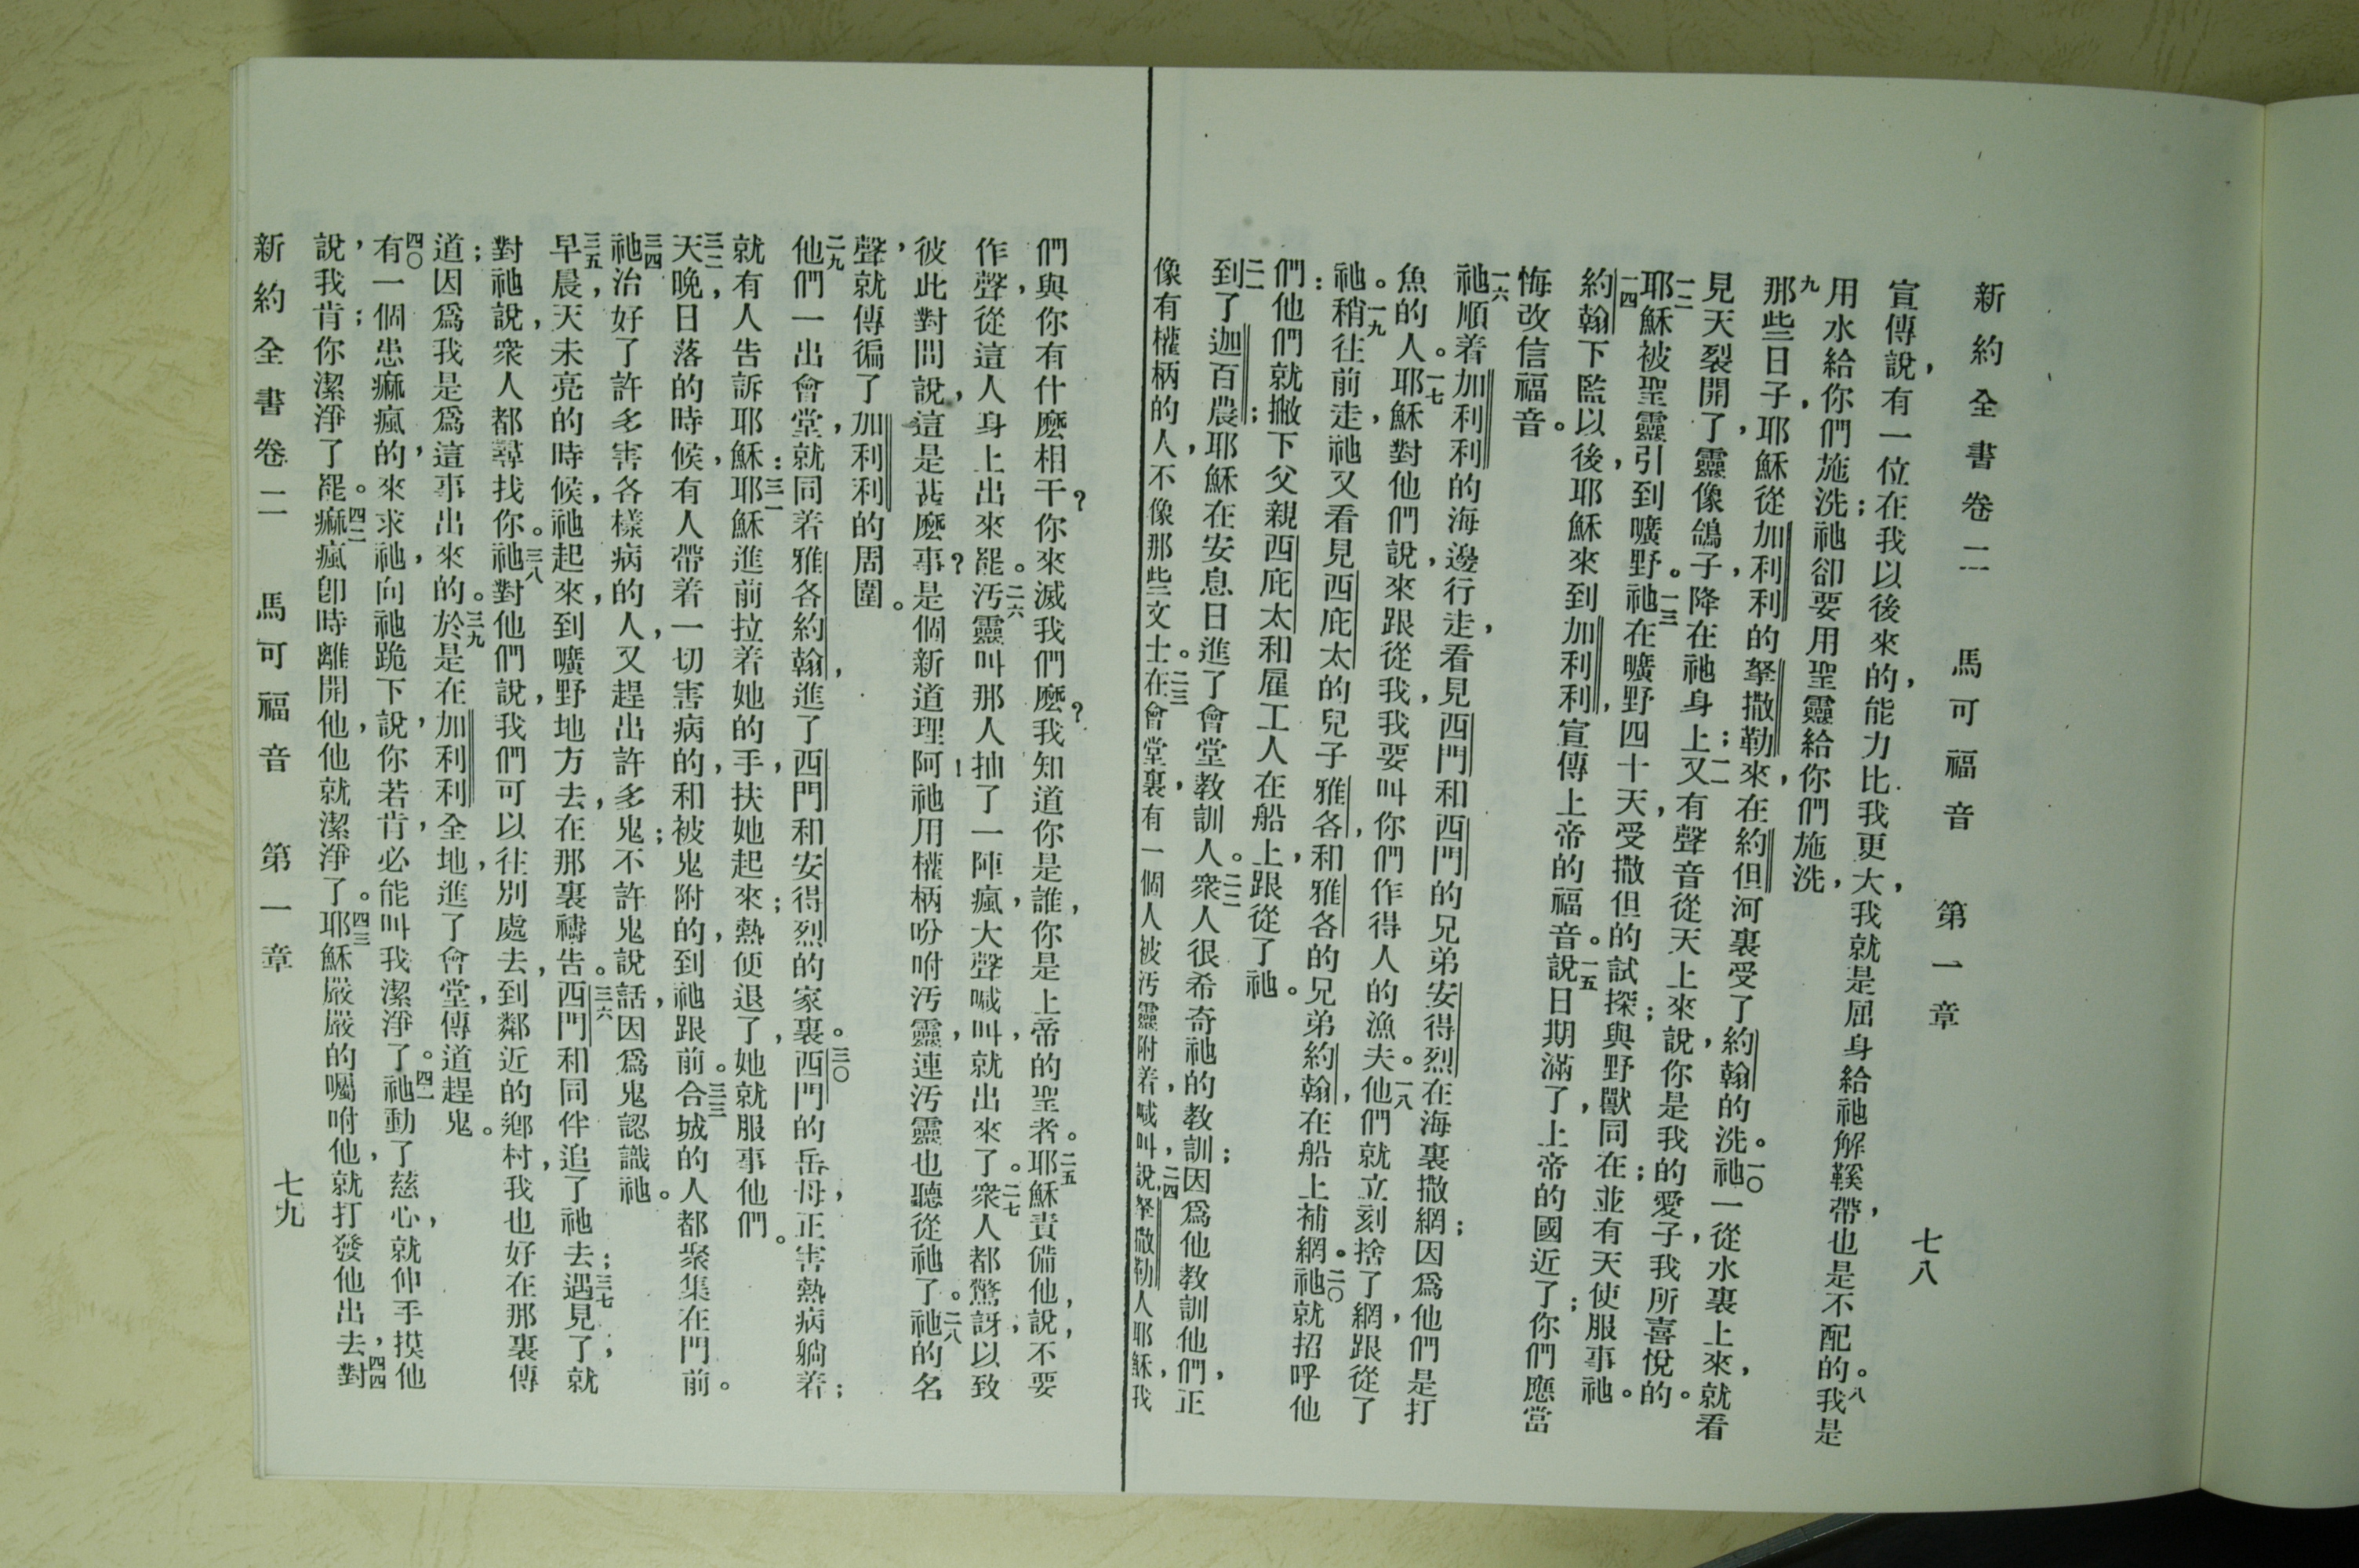 新約全書卷二　馬可福音　第一章　七八
宣傳說，有一位在我以後來的，能力比我更大，我就是屈身給祂解鞵帶，也是不配的。八我是
用水給你們施洗；祂卻要用聖靈給你們施洗，
九那些日子，耶穌從加利利的拏撒勒來，在約但河裏受了約翰的洗。一〇祂一從水裏上來，就看
見天裂開了，靈像鴿子，降在祂身上；一一又有聲音從天上來，說你是我的愛子，我所喜悅的。
一二耶穌被聖靈引到曠野。一三祂在曠野四十天，受撒但的試探；與野獸同在；並有天使服事祂。
一四約翰下監以後，耶穌來到加利利，宣傳上帝的福音。一五說日期滿了，上帝的國近了；你們應當
悔改信福音。
一六祂順着加利利的海邊行走，看見西門和西門的兄弟安得烈在海裏撒網；因爲他們是打
魚的人。一七耶穌對他們說，來跟從我，我要叫你們作得人的漁夫。一八他們就立刻捨了網，跟從了
祂。一九稍往前走，祂又看見西庇太的兒子雅各，和雅各的兄弟約翰，在船上補網。二〇祂就招呼他
們：他們就撇下父親西庇太和雇工人在船上，跟從了祂。
二一到了迦百農；耶穌在安息日進了會堂教訓人。二二衆人很希奇祂的教訓；因爲他教訓他們，正
像有權柄的人，不像那些文士。二三在會堂裏，有一個人被汚靈附着，喊叫，二四說，拏撒勒人耶穌，我
們與你有什麼相干？你來滅我們麼？我知道你是誰，你是上帝的聖者。二五耶穌責備他，說，不要
作聲，從這人身上出來罷。二六汚靈叫那人抽了一陣瘋，大聲喊叫，就出來了。二七衆人都驚訝；以致
彼此對問說，這是甚麼事？是個新道理阿！祂用權柄吩咐汚靈，連汚靈也聽從祂了。二八祂的名
聲，就傳徧了加利利的周圍。
二九他們一出會堂，就同着雅各約翰，進了西門和安得烈的家裏。三〇西門的岳母，正害熱病躺着；
就有人告訴耶穌：三一耶穌進前拉着她的手，扶她起來；熱便退了，她就服事他們。
三二天晚，日落的時候，有人帶着一切害病的，和被鬼附的，到祂跟前。三三合城的人都聚集在門前。
三四祂治好了許多害各樣病的人，又趕出許多鬼；不許鬼說話，因爲鬼認識祂。
三五早晨，天未亮的時候，祂起來，到曠野地方去，在那裏禱告。三六西門和同伴追了祂去；三七遇見了，就
對祂說，衆人都尋找你。三八祂對他們說，我們可以往別處去，到鄰近的鄕村，我也好在那裏傳
道；因爲我是爲這事出來的。三九於是在加利利全地，進了會堂，傳道趕鬼。
四〇有一個患痲瘋的，來求祂，向祂跪下，說，你若肯，必能叫我潔淨了。四一祂動了慈心，就伸手摸他
說，我肯；你潔淨了罷。四二痲瘋卽時離開他，他就潔淨了。四三耶穌嚴嚴的囑咐他，就打發他出去，四四對
新約全書卷二　馬可福音　第一章　七九